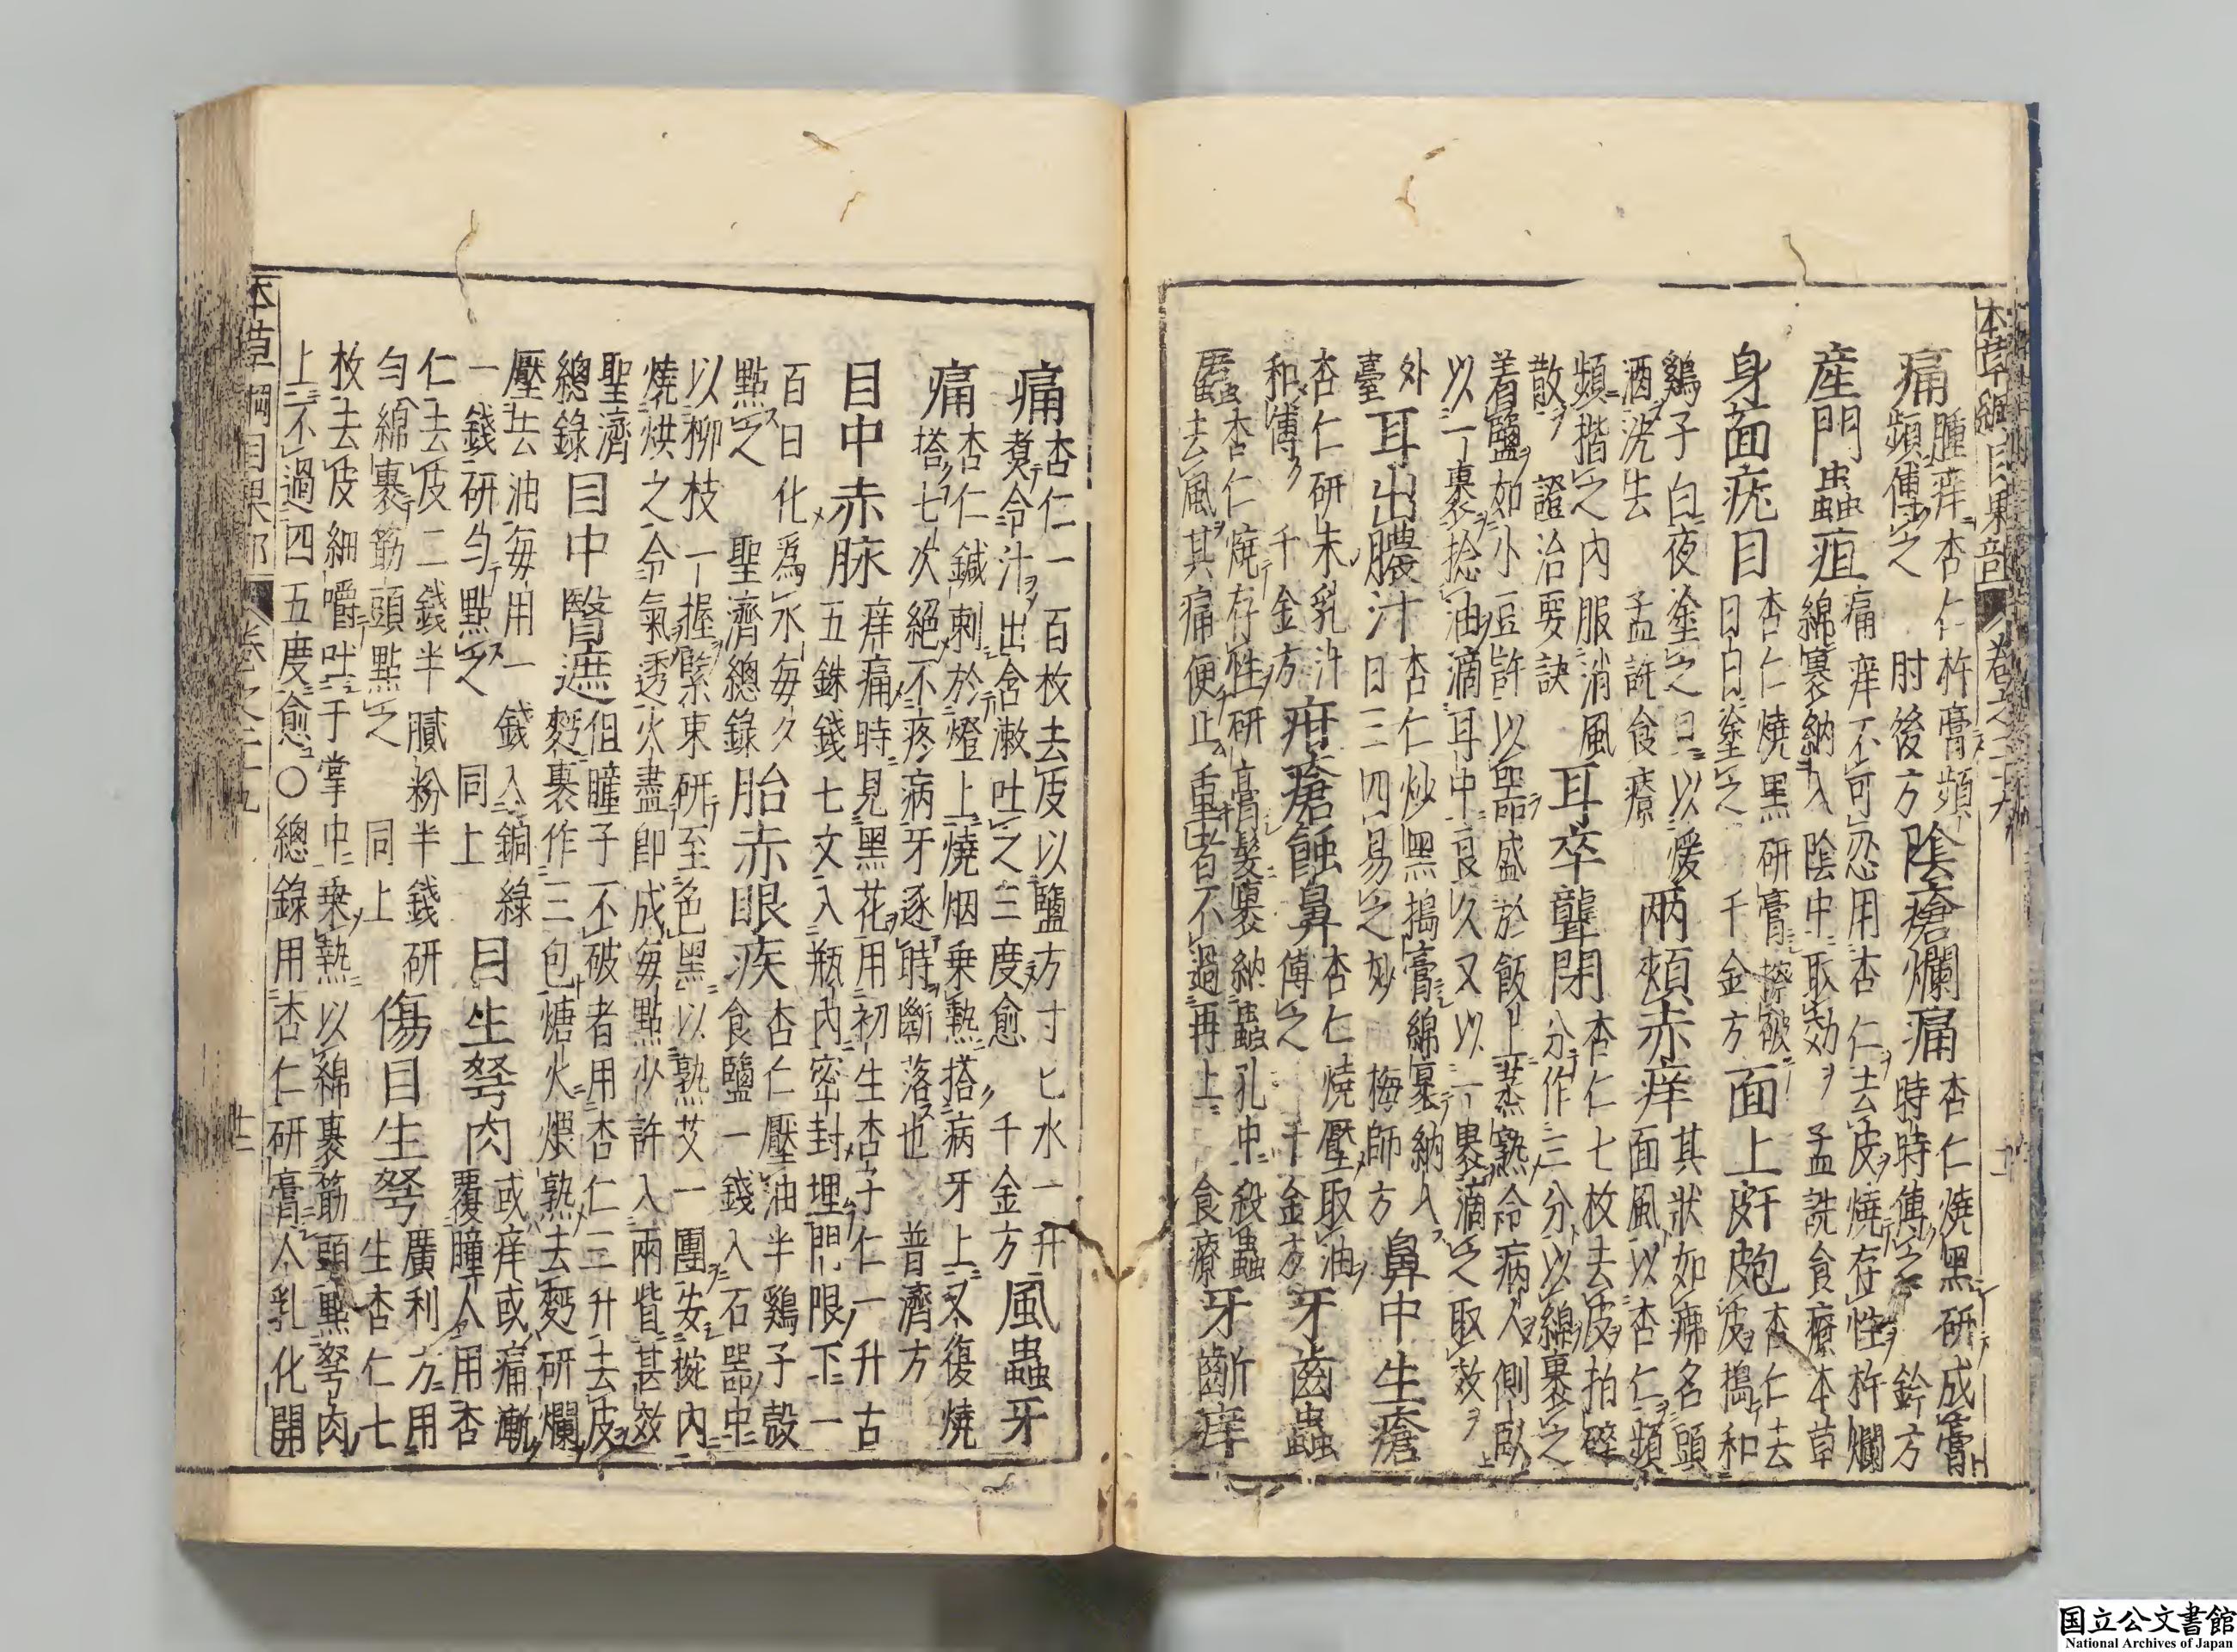 本草綱目果部 卷之二十九
痛
腫痒杏仁杵膏頻
頻傅之 肘後方
陰瘡爛痛
杏仁燒黑研成膏
時時傅之 鈐方
産門蟲疽
痛痒不可忍用杏仁去皮燒存性杵爛
綿裹納入陰中取効 孟詵食療本草
身面疣目
杏仁燒黑研膏擦破
日日塗之 千金方
面上皯皰
杏仁去
皮搗和
鷄子白夜塗之旦以煖
酒洗去 孟詵食療
兩頰赤痒
其狀如痱名頭
面風以杏仁頻
頻揩之內服消風
散 證治要訣
耳卒聾閉
杏仁七枚去皮拍碎
分作三分以綿裹之
着鹽如小豆許以器盛於飯上蒸熟令病人側臥
以一裹捻油滴耳中良久又以一裹滴之取效
外
臺
耳出膿汁
杏仁炒黑搗膏綿裹納入
日三四易之妙 梅師方
鼻中生瘡
杏仁研末乳汁
和傅 千金方
疳瘡蝕鼻
杏仁燒壓取油
傅之 千金方
牙齒蟲
杏仁燒存性研膏髮裹納蟲孔中殺蟲
去風其痛便止重者不過再上 食療
牙齗痒
痛
杏仁一百枚去皮以鹽方寸匕水一升
煑令汁出含漱吐之三度愈 千金方
風蟲牙
痛
杏仁鍼刺於燈上燒烟乗熱搭病牙上又復燒
搭七次絕不疼病牙逐時斷落也 普濟方
目中赤脉
痒痛時見黑花用初生杏子仁一升古
五銖錢七文入瓶內密封埋門限下一
百日化爲水每夕
點之 聖濟總錄
胎赤眼疾
杏仁壓油半鷄子殼
食鹽一錢入石器中
以柳枝一握緊束研至色黑以熟艾一團安椀內
燒烘之令氣透火盡即成每點少許入兩眥甚效
聖濟
總錄
目中瞖遮
但瞳子不破者用杏仁三升去皮
麪裹作三包煻火煨熟去麪研爛
壓去油每用一錢入銅綠
一錢研勻點之 同上
目生弩肉
或痒或痛漸
覆瞳人用杏
仁去皮二錢半膩粉半錢研
勻綿裹筯頭點之 同上
傷目生弩
廣利方用
生杏仁七
枚去皮細嚼吐于掌中乗熱以綿裹筯頭點弩肉
上不過四五度愈〇總錄用杏仁研膏人乳化開
本草綱目果部 卷之二十九 廿二
国立公文書館
National Archives of Japan